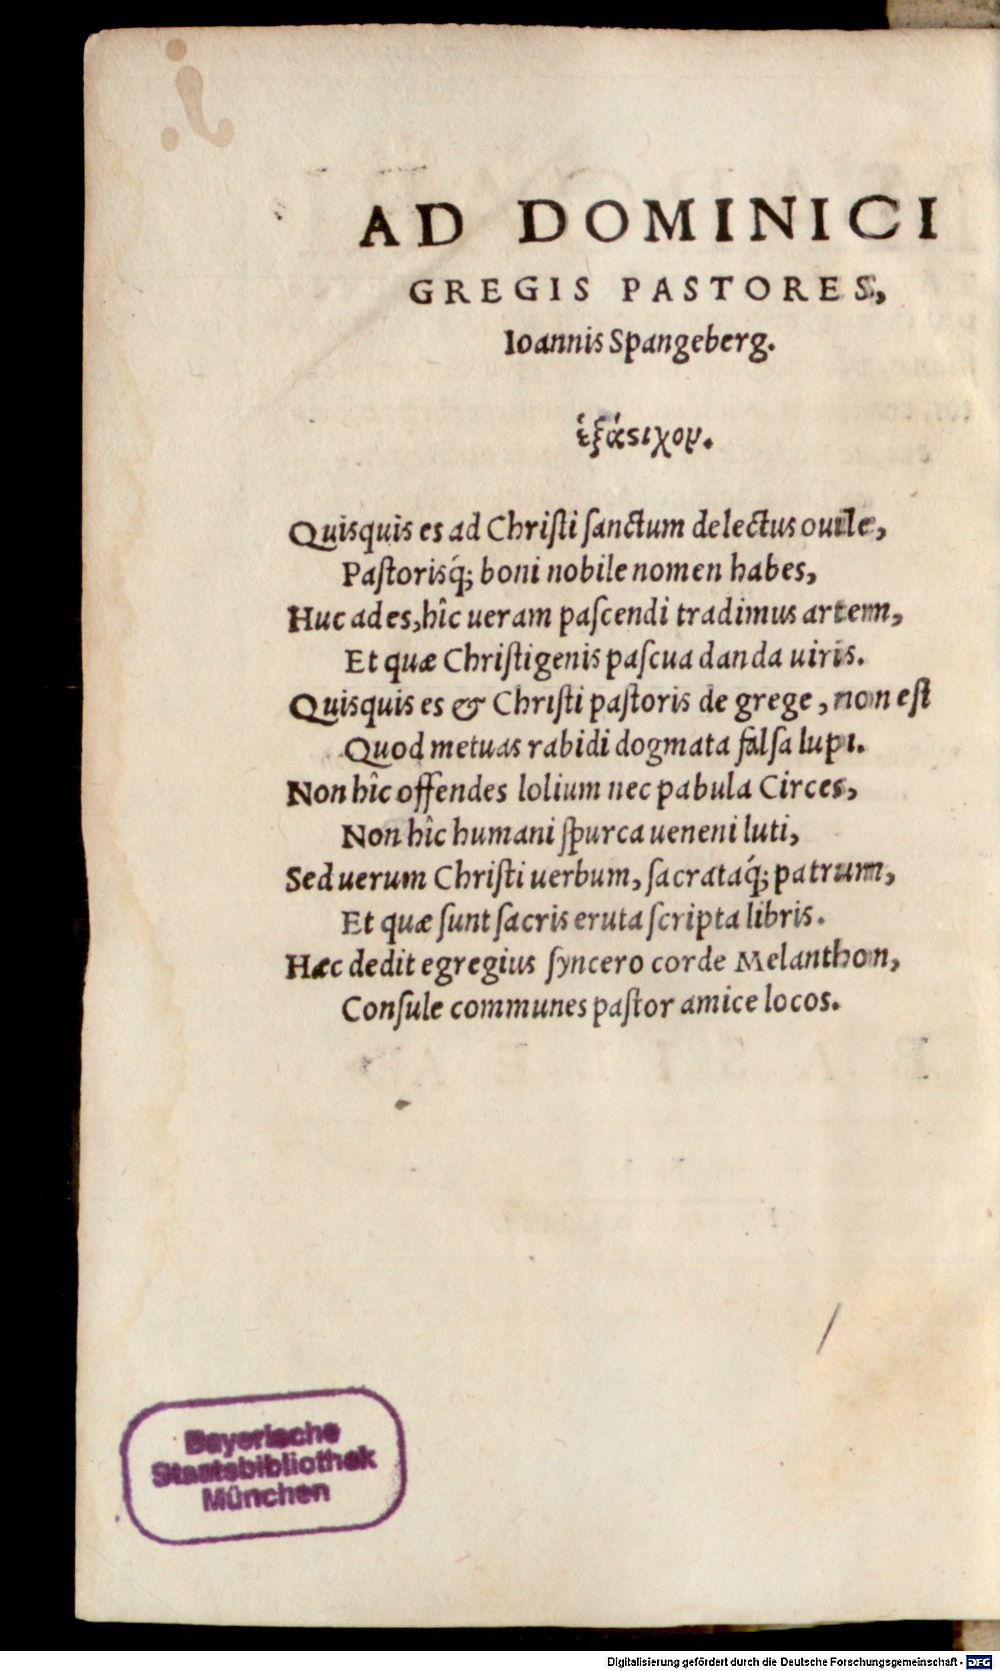 AD DOMINICI
GREGIS PASTORES,
Ioannis Spangeberg.
ἑξάϛιχον.
Quisquis es ad Chriſti ſanctum delectus ouile,
Paſtorisq́; boni nobile nomen habes,
Huc ades, hîc ueram paſcendi tradimus artem,
Et quæ Chriſtigenis paſcua danda uiris.
Quisquis es & Chriſti paſtoris de grege, non eſt
Quod metuas rabidi dogmata falſa lupi.
Non hîc offendes lolium nec pabula Circes,
Non hîc humani ſpurca ueneni luti,
Sed uerum Chriſti uerbum, ſacrataq́; patrum,
Et quæ ſunt ſacris eruta ſcripta libris.
Hæc dedit egregius ſyncero corde Melanthon,
Conſule communes paſtor amice locos.
Bayerische
Staatsbibliothek
München
Digitalisierung gefördert durch die Deutsche Forschungsgemeinschaft - DFG